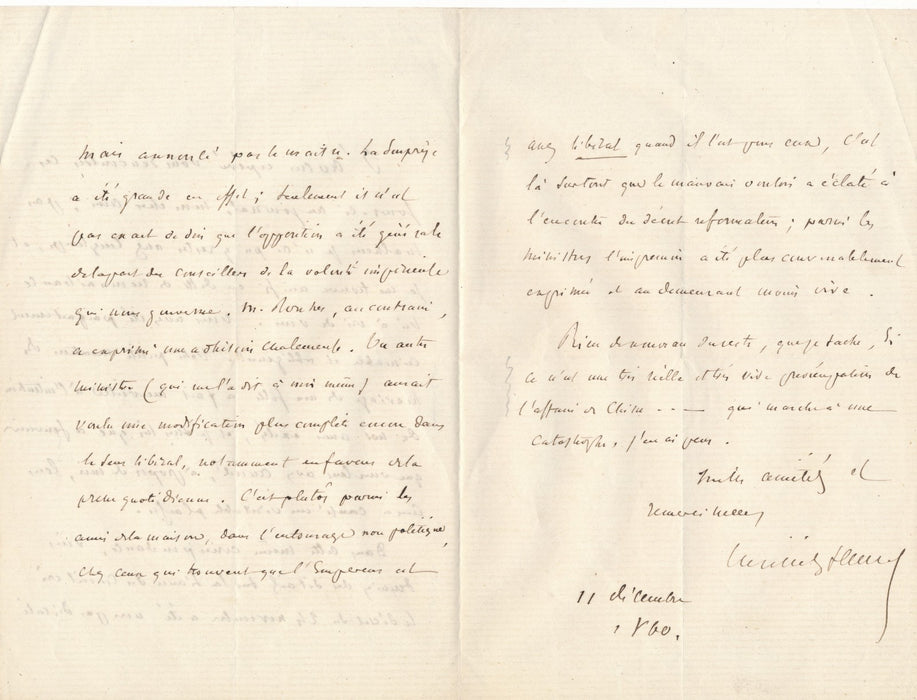 mais annoncé par le maître. La surprise
a été grande en effet ; seulement il n'est
pas exact de dire que l'opposition a été générale
de la part des conseillers de la volonté impériale
qui nous gouverne. M. Rouher, au contraire,
a exprimé une adhésion chaleureuse. Un autre
ministre (qui me l'a dit, à moi même) aurait
voulu une modification plus complète encore dans
le sens libéral, notamment en faveur de la
presse quotidienne. C'est plutôt parmi les
amis de la maison, dans l'entourage non politique,
chez ceux qui trouvent que l'Empereur est
assez libéral quand il l'est pour eux, c'est
là surtout que le mauvais vouloir a éclaté à
l'encontre du décret réformateur ; parmi les
ministres l'impression a été plus convenablement
exprimée et au demeurant moins vive.
Rien de nouveau du reste, que je sache, si
ce n'est une très réelle et très vive préoccupation de
l'affaire de Chine - - — qui marche à une
catastrophe, j'en ai peur.
et
11 décembre
1860.